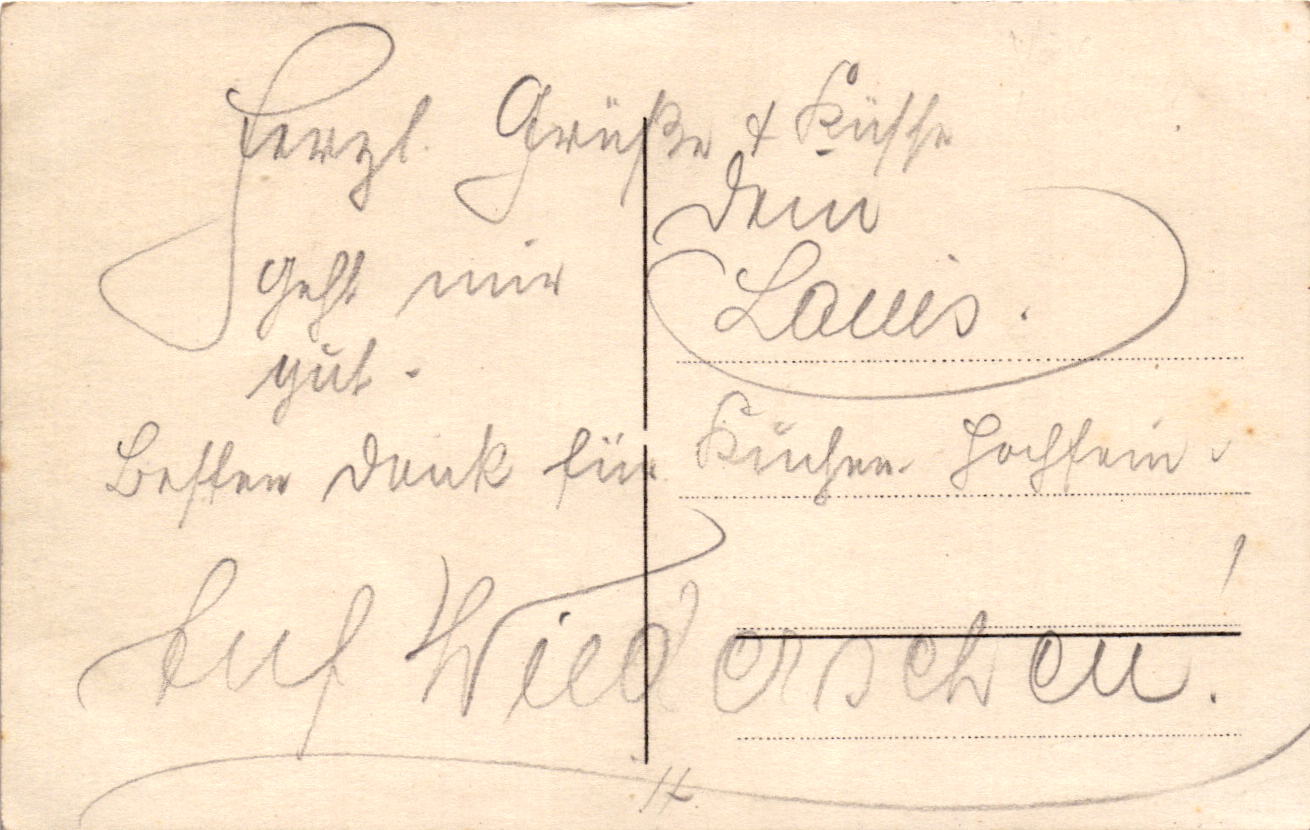 Herzl. Grüße & Küsse
Dein
Louis.
geht mir
gut.
Besten Dank für Kuchen hochfein.
Auf Wiedersehen!